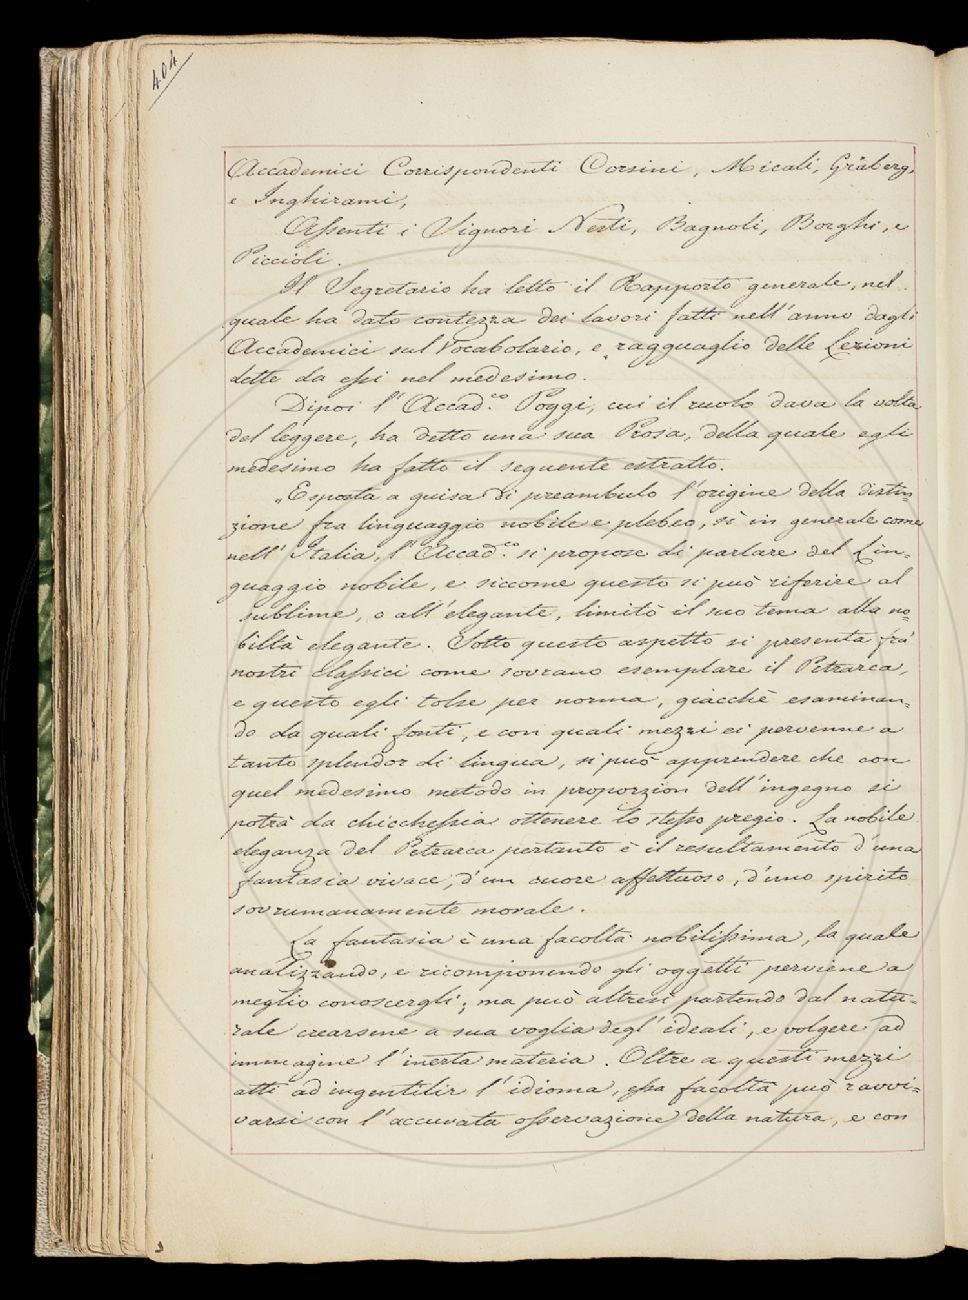 404
Accademici Corrispondenti Corsini, Micali, Gråberg,
e Inghirami,
Assenti i Signori Nesti, Bagnoli, Borghi, e
Piccioli.
Il Segretario ha letto il Rapporto generale, nel
quale ha dato contezza dei lavori fatti nell'anno dagli
Accademici sul Vocabolario, e ragguaglio delle Lezioni
dette da essi nel medesimo.
Dipoi l'Accad.co Poggi, cui il ruolo dava la volta
del leggere, ha detto una sua Prosa, della quale egli
medesimo ha fatto il seguente estratto.
"Esposta a guisa di preambulo l'origine della distin=
zione fra linguaggio nobile e plebeo, sì in generale come
nell'Italia, l'Accad.co si propose di parlare del Lin=
guaggio nobile, e siccome questo si può riferire al
sublime, o all'elegante, limitò il suo tema alla no=
biltà elegante. Sotto questo aspetto si presenta frà
nostri Classici come sovrano esemplare il Petrarca,
e questo egli tolse per norma, giacchè esaminan=
do da quali fonti, e con quali mezzi ei pervenne a
tanto splendor di lingua, si può apprendere che con
quel medesimo metodo in proporzion dell'ingegno si
potrà da chicchessia ottenere lo stesso pregio. La nobile
eleganza del Petrarca pertanto è il resultamento d'una
fantasia vivace, d'un cuore affettuoso, d'uno spirito
sovrumanamente morale.
La fantasia è una facoltà nobilissima, la quale
analizzando, e ricomponendo gli oggetti perviene a
meglio conoscergli; ma può altresì partendo dal natu=
rale crearsene a sua voglia degl'ideali, e volgere ad
immagine l'inerta materia. Oltre a questi mezzi
atti ad ingentilir l'idioma, essa facoltà può ravvi=
varsi con l'accurata osservazione della natura, e con